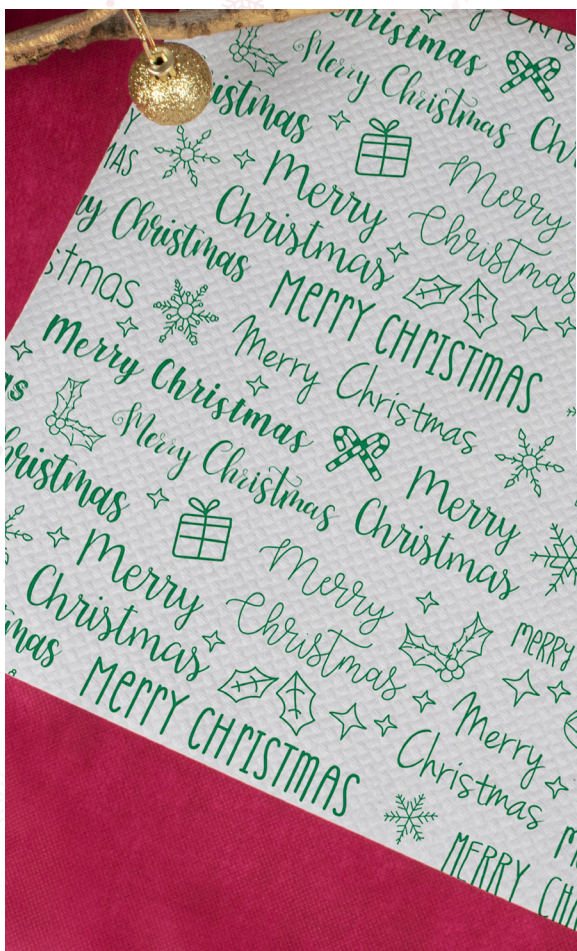 ristmas
Merry Christmas
istmas
Merry
Christmas
Merry
Christmas
MAS
y Christmas
stmas
MERRY CHRISTMAS
Merry Christmas
Merry Christmas
as
Merry Christmas
Merry
Christmas
hristmas
Merry
Christmas
Merry
Christmas
MERRY
mas
MERRY CHRISTMAS
Merry
Christmas
MERRY CH